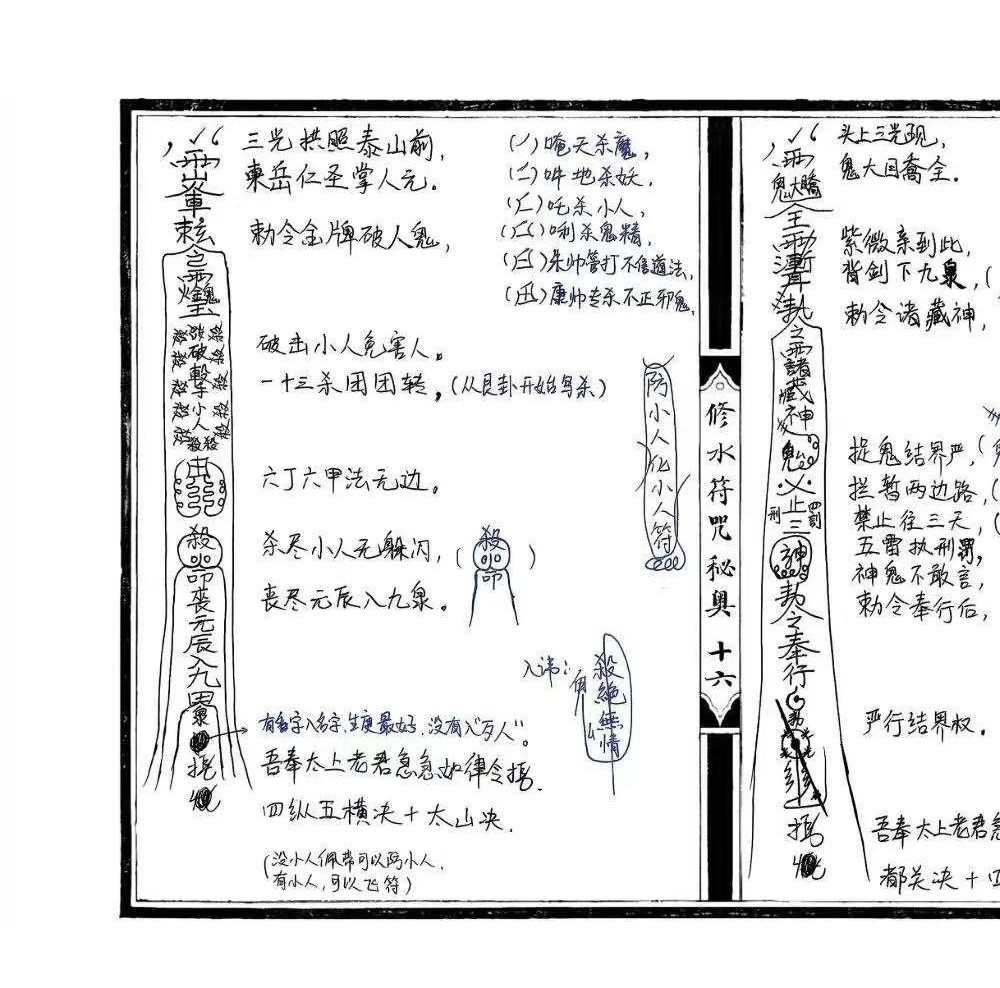 三光拱照泰山前，
東岳仁圣掌人元。
勅令金牌破人鬼，
破击小人免害人。
一十三杀团团转，(从艮卦开始写杀)
六丁六甲法无边。
杀尽小人无躲闪，(殺命)
丧尽元辰入九泉。
有名字入名字，生庚最好，没有入"歹人"。
吾奉太上老君急急如律令
四纵五横决十太山决.
(没小人佩带可以防小人，
有小人，可以飞符)
唵天杀魔，
吽地杀妖，
吒杀小人，
唎杀鬼精，
朱帅管打不信道法，
康帅专杀不正邪鬼.
防小人化小人符
入讳：
殺絶無情
破擊小人
殺
命喪元辰入九泉
修水符咒秘奥 十六
头上三光现，
鬼大目喬全.
紫微亲到此，
背剑下九泉，(
勅令诸藏神，
捉鬼结界严，(
拦暂两边路，(
禁止往三天，(
五雷执刑罰，
神鬼不敢言，
勅令奉行后，
严行结界权.
吾奉太上老君急
都关决十四
諸藏神
鬼
止
三
神
奉行